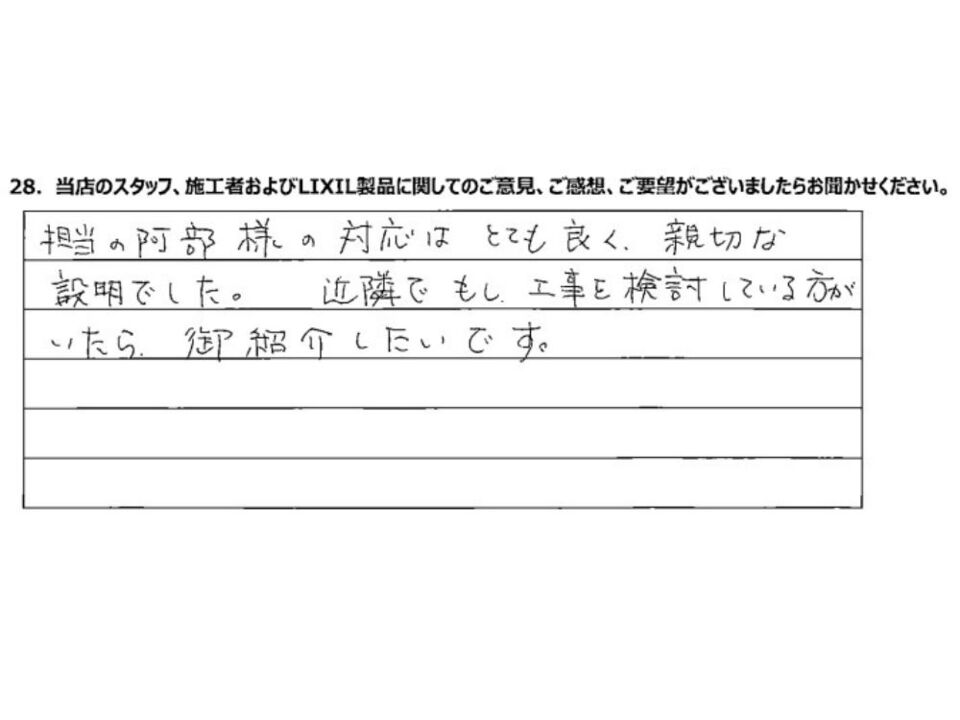 28. 当店のスタッフ、施工者およびLIXIL製品に関してのご意見、ご感想、ご要望がございましたらお聞かせください。
担当の阿部様の対応はとても良く、親切な
説明でした。 近隣でもし、工事を検討している方が
いたら、御紹介したいです。